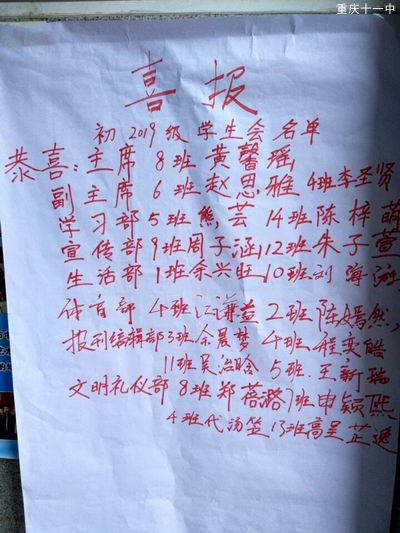 重庆十一中
喜报
初2019级学生会名单
恭喜:主席 8班黄馨瑶
副主席 6班赵思雅 4班李圣贤
学习部5班熊芸 14班陈梓萌
宣传部9班周子涵12班朱子萱
生活部1班余兴旺10班刘海
体育部 4班江谦益 2班陈嫣然
报刊编辑部3班余晨梦 4班程奕皓
11班吴治晗 5班王新瑞
文明礼仪部8班郑蓓潞7班申颖熙
4班代 13班高呈芷逸